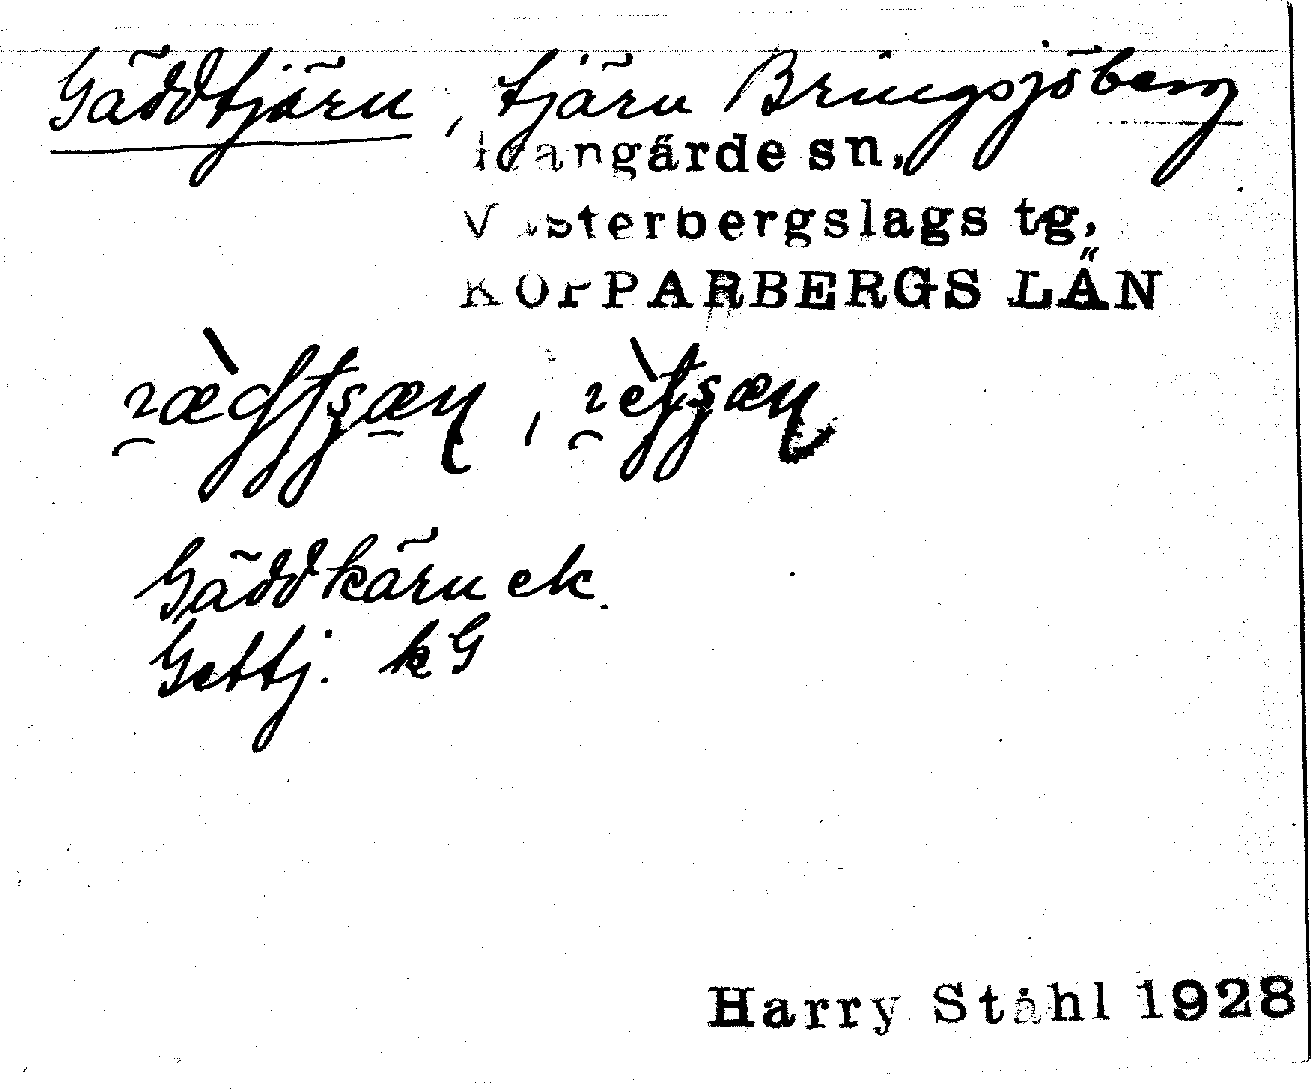 Gäddtjärn, tjärn Bringsjöberg
Grangärde sn.
Västerbergslags tg.
KOPPARBERGS LÄN
Gäddkärn ek.
Gettj. kG
Harry Ståhl 1928